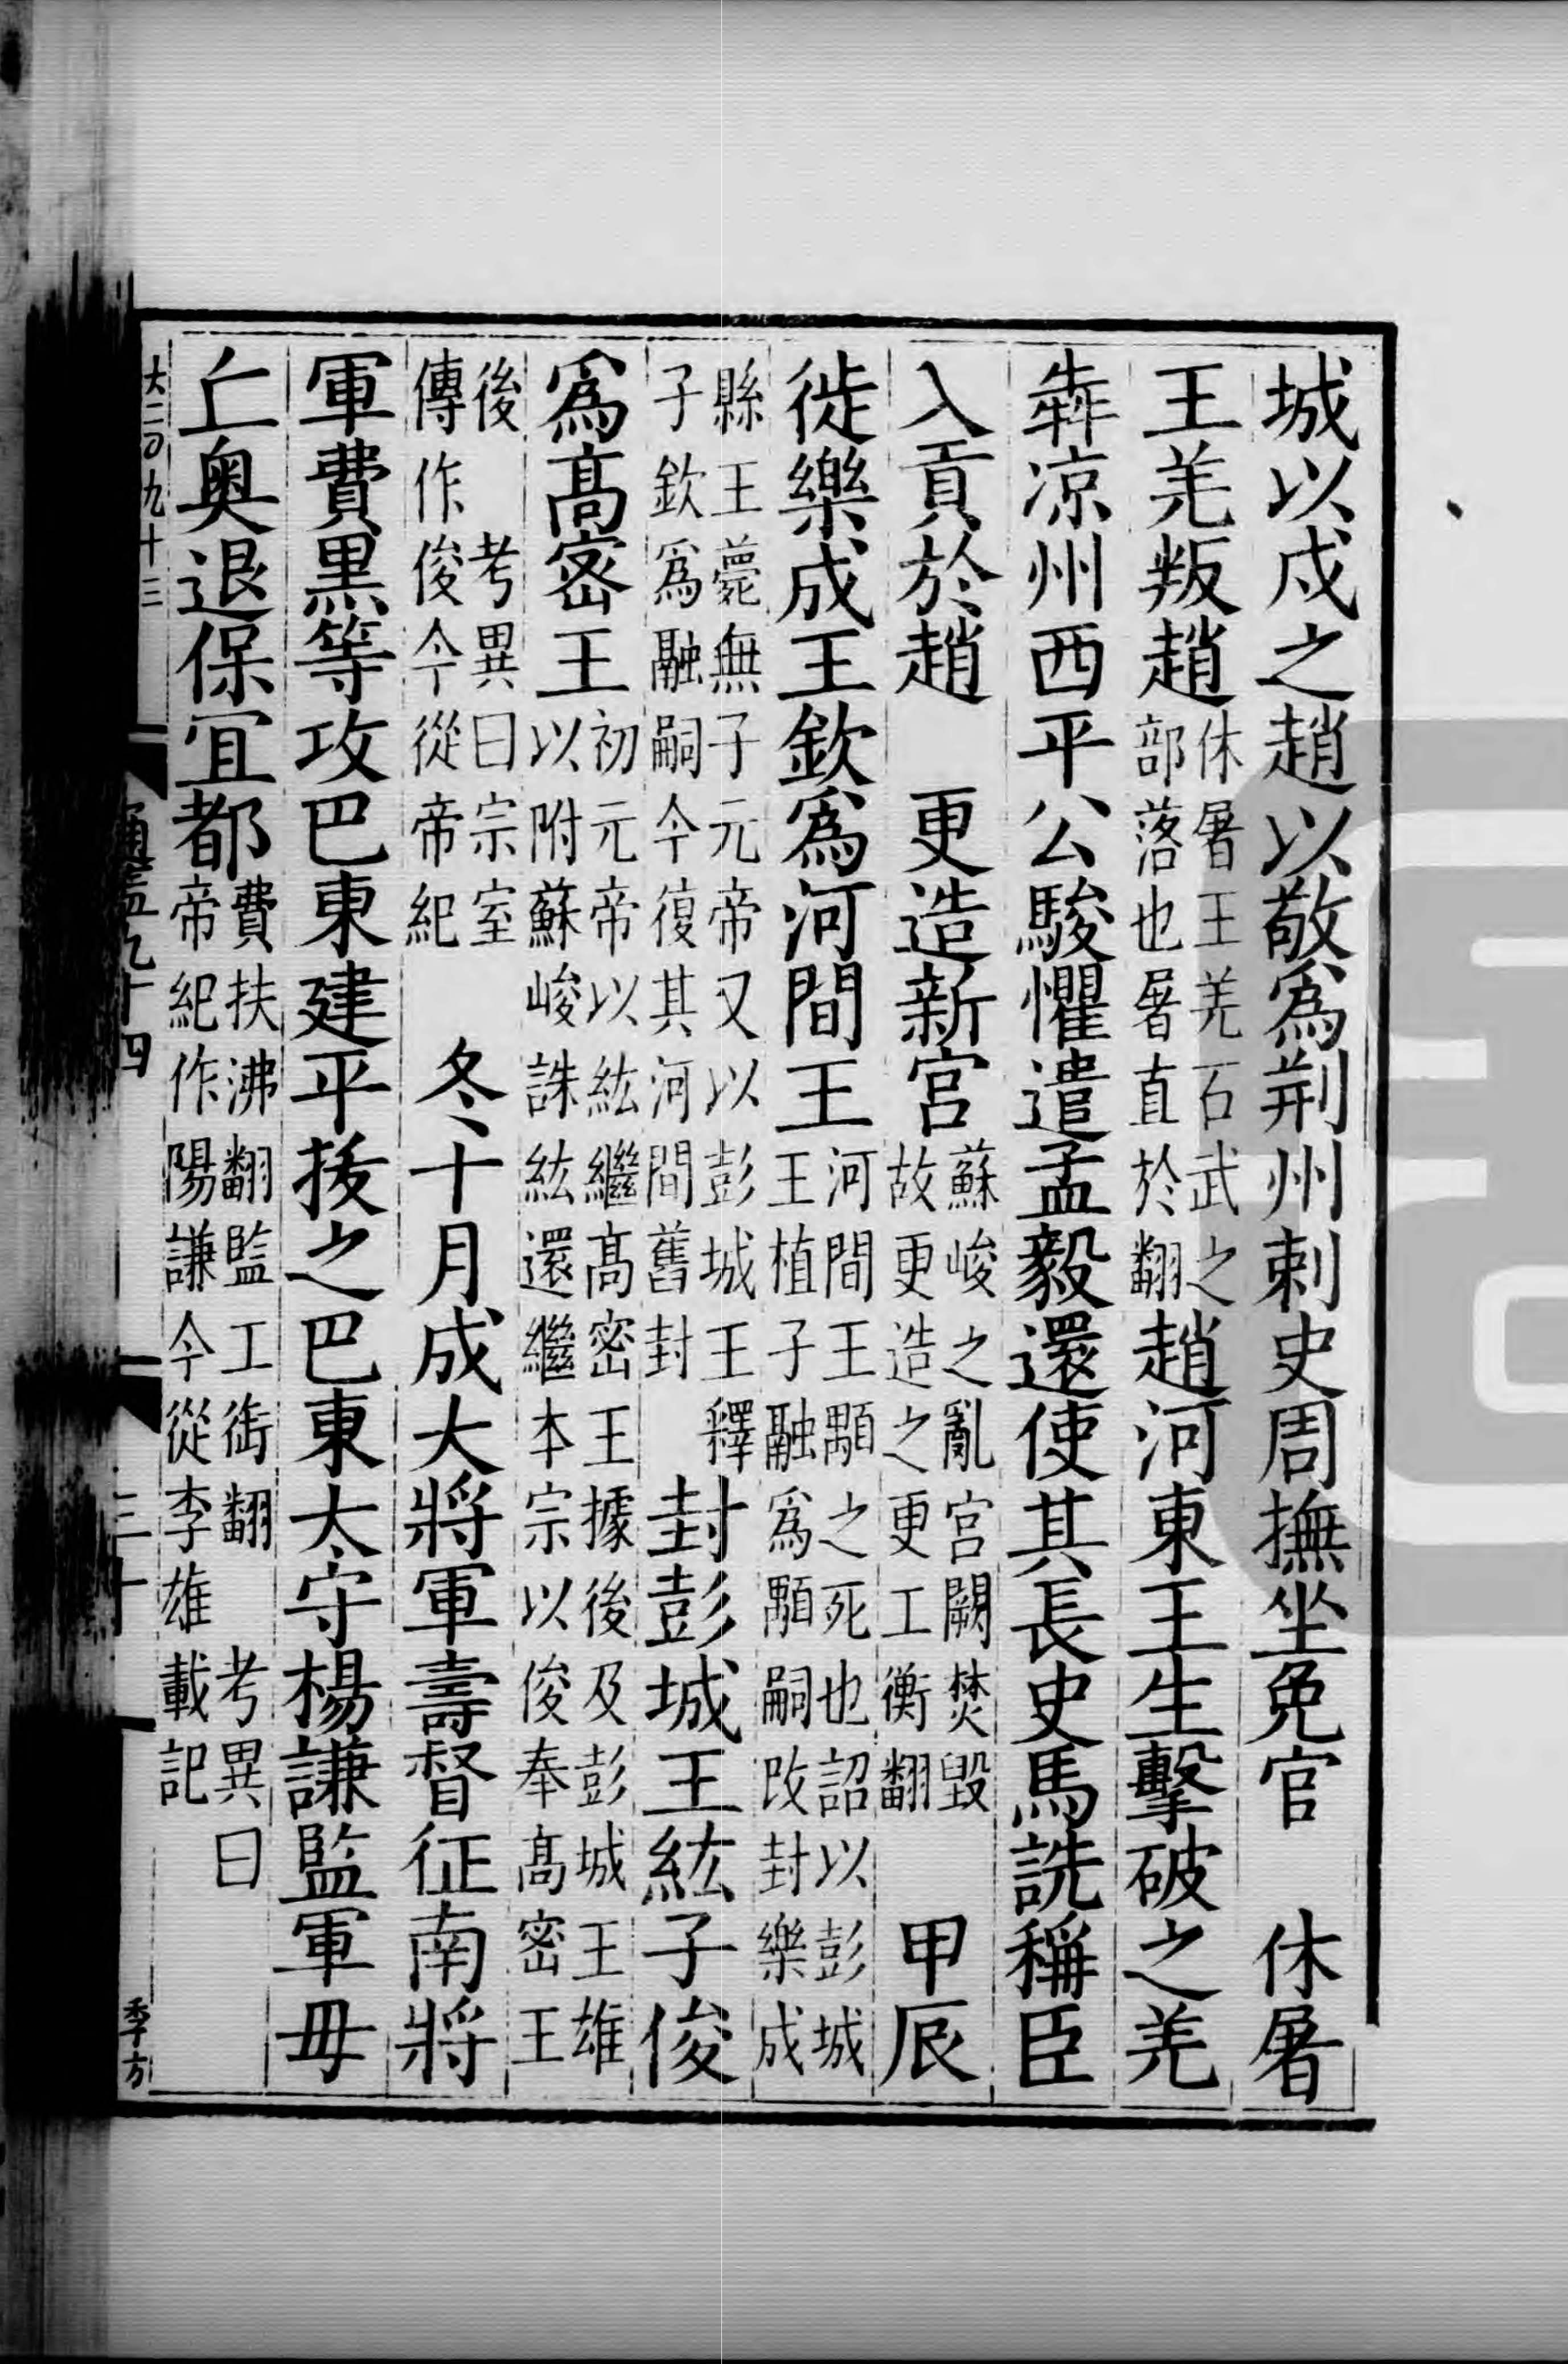 城以戍之趙以敬爲荆州刺史周撫坐免官 休屠
王羌叛趙休屠王羌石武之部落也屠直於翻趙河東王生擊破之羌
犇凉州西平公駿懼遣孟毅還使其長史馬詵稱臣
入貢於趙 更造新宫蘇峻之亂宫闕焚毁故更造之更工衡翻 甲辰
徙樂成王欽爲河間王河間王顒之死也詔以彭城王植子融爲顒嗣改封樂成
縣王薨無子元帝又以彭城王釋子欽爲融嗣今復其河間舊封 封彭城王紘子俊
爲高密王初元帝以紘繼高密王據後及彭城王雄以附蘇峻誅紘還繼本宗以俊奉高密王
後考異曰宗室傳作俊今從帝紀 冬十月成大將軍壽督征南將
軍費黑等攻巴東建平拔之巴東太守楊謙監軍毌
丘奥退保宜都費扶沸翻監工銜翻考異曰帝紀作陽謙今從李雄載記
大二百九十三
九十四
季方